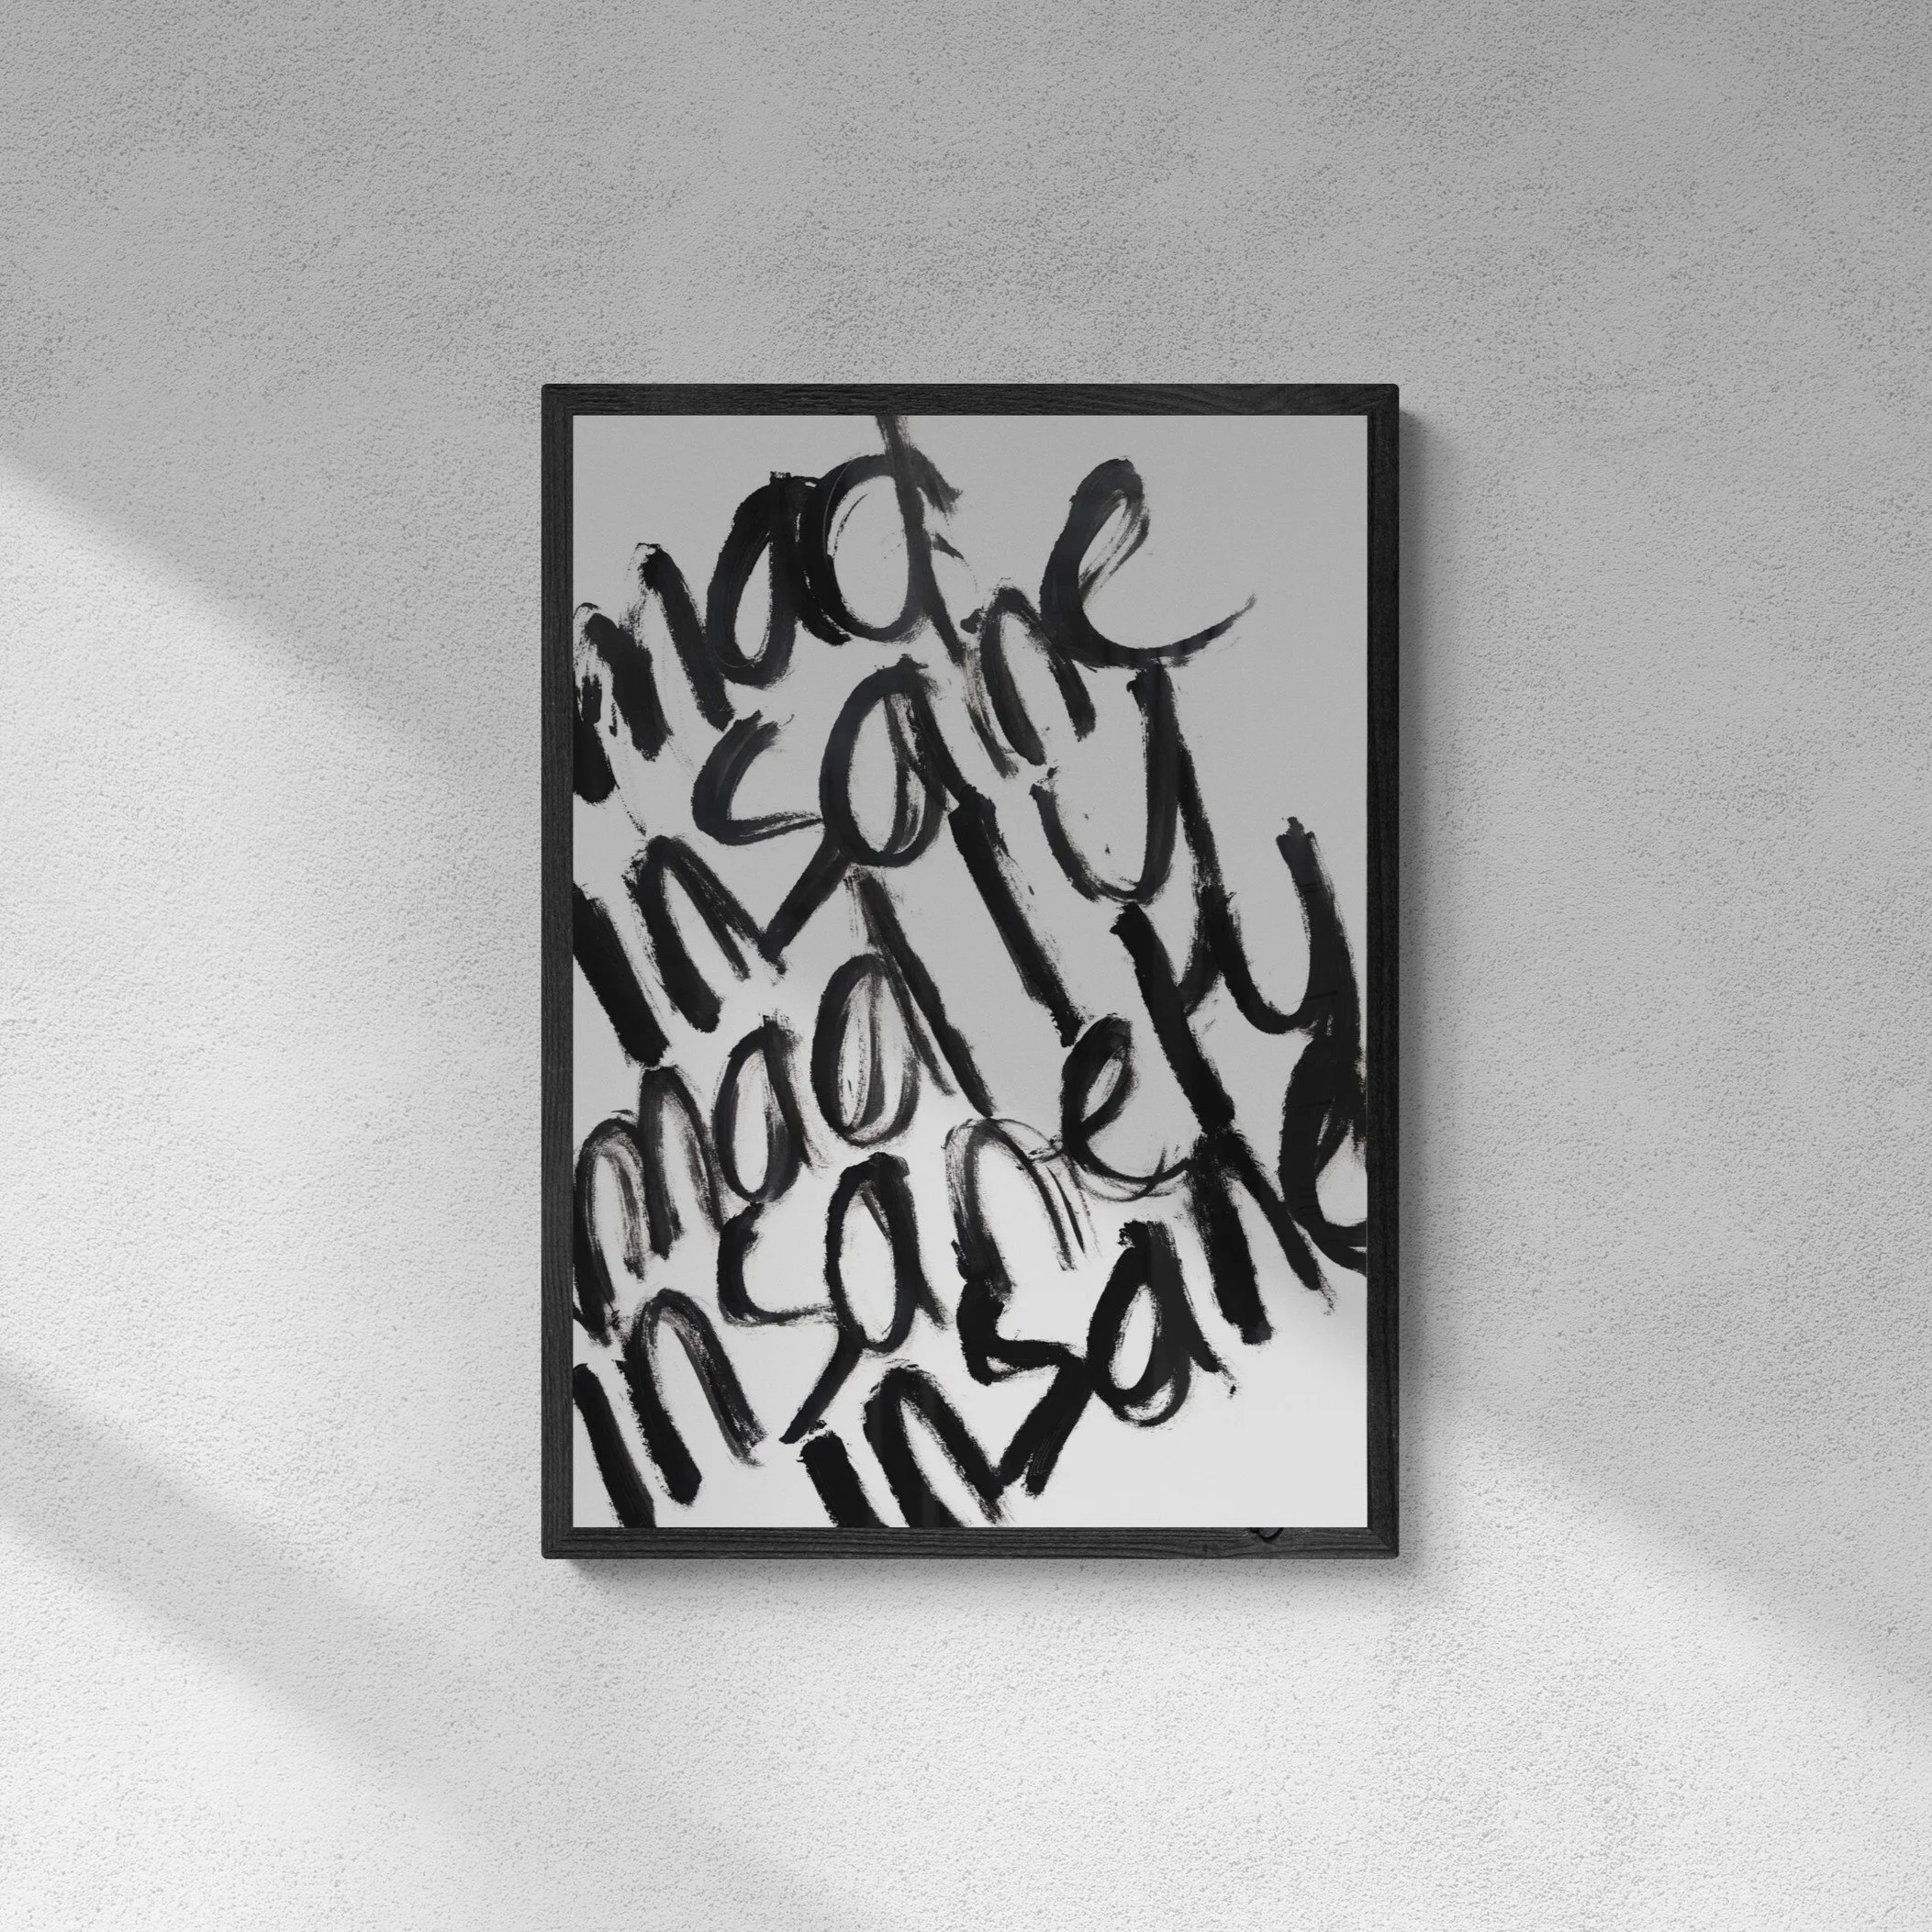 mad
insane
madly
insanely
insane